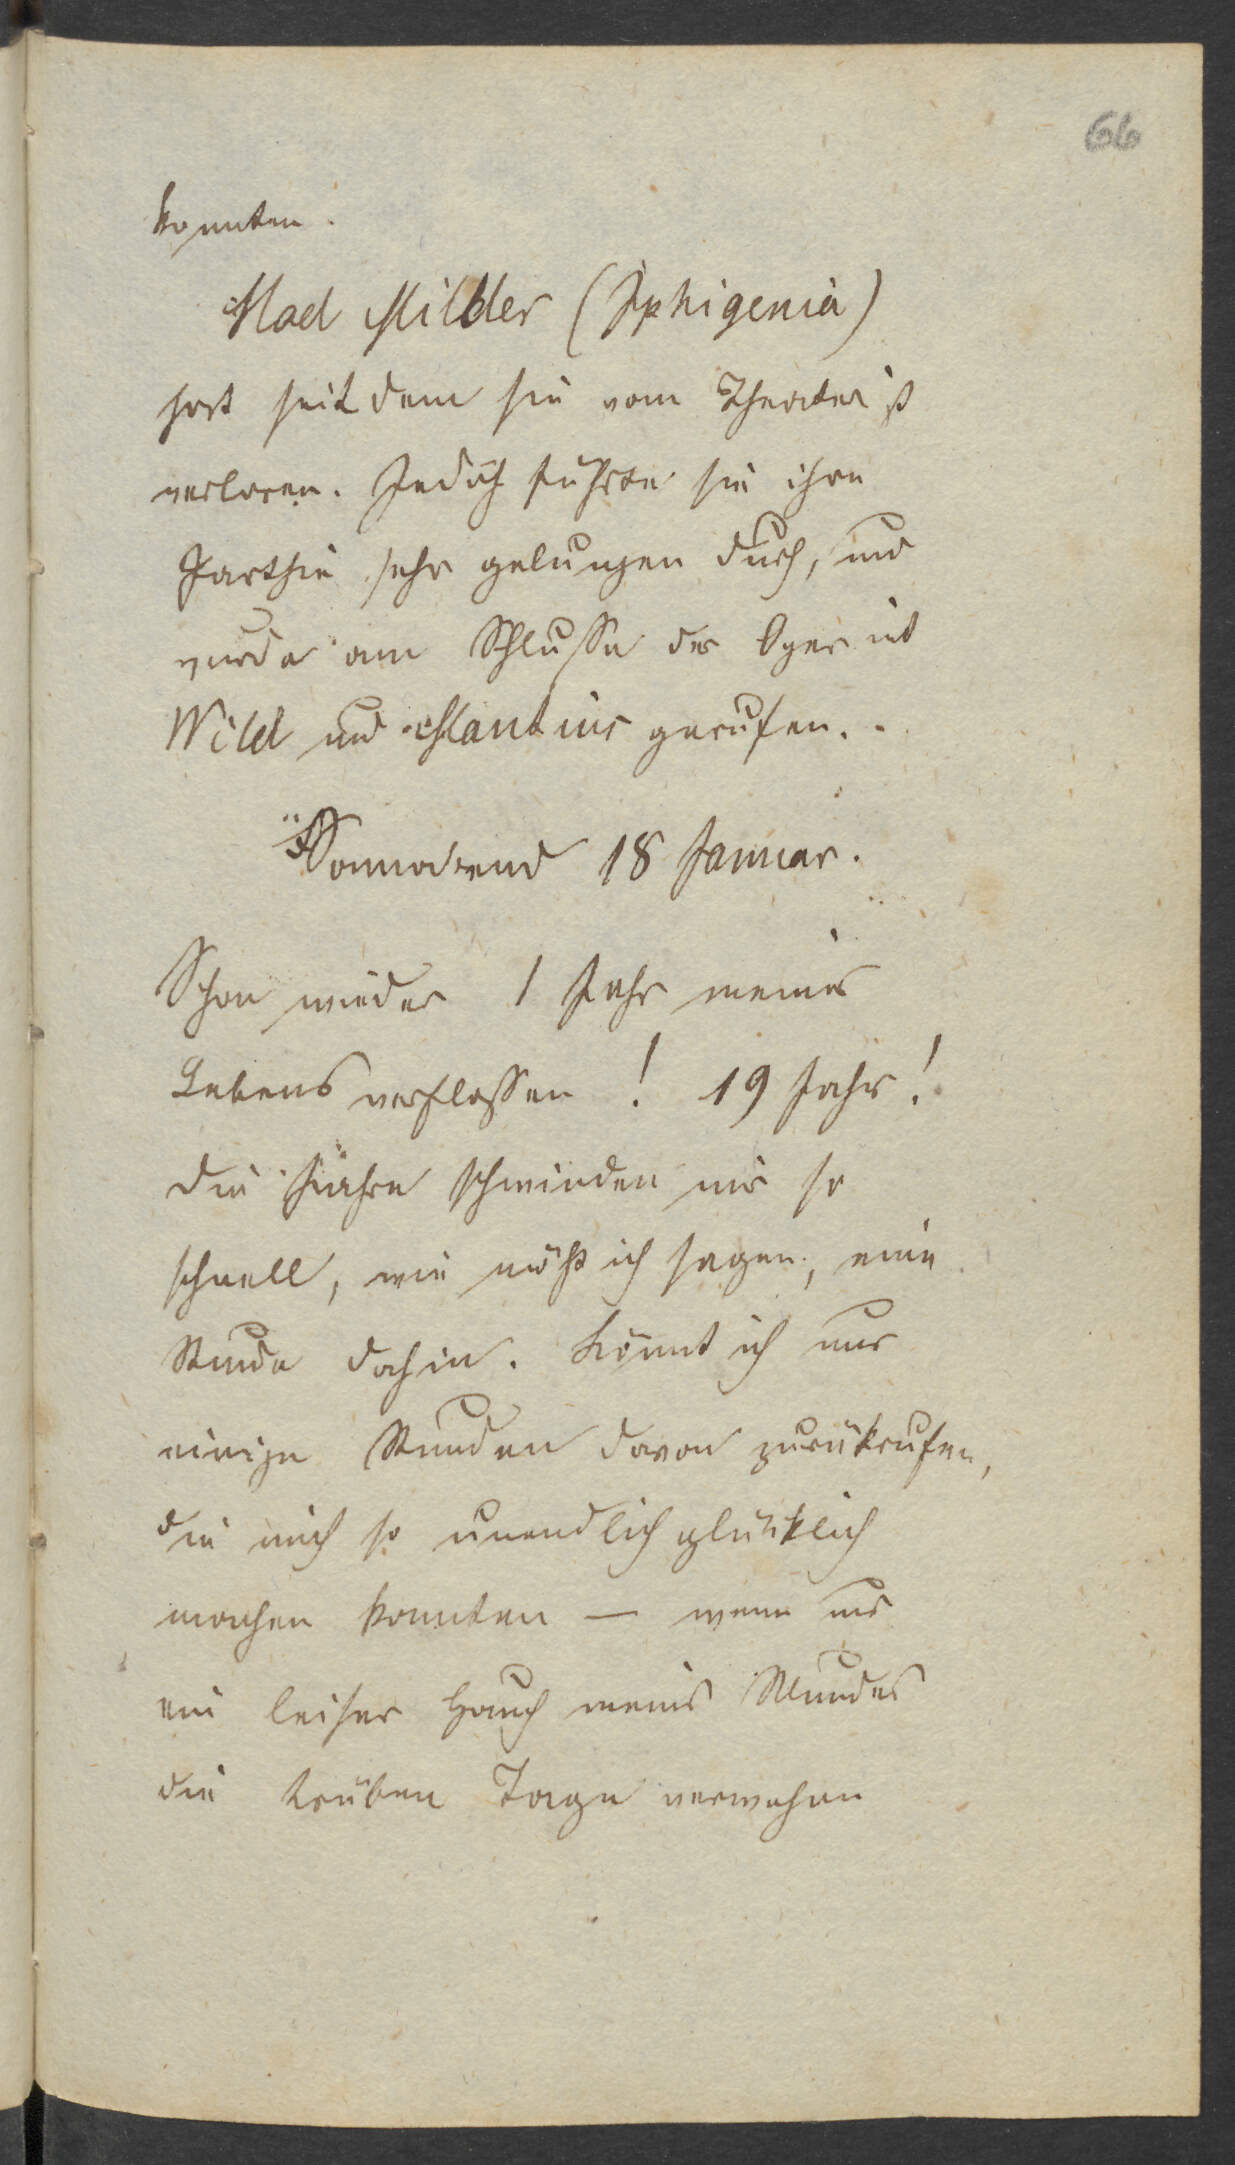 66
konnten.
Mad Milder (Iphigenia)
hat seit dem sie vom Theater ist
verloren. Jedoch führte sie ihre
Parthie sehr gelungen durch, und
wurde am Schlusse der Oper mit
Wild und Mantius gerufen. -
Sonnabend 18 Januar.
Schon wieder 1 Jahr meines
Lebens verflossen! 19 Jahr!
die Jahre schwinden mir so
schnell, wie möcht ich sagen, eine
Stunde dahin. Könnt ich nur
einige Stunden davon zurükrufen,
die mich so unendlich glücklich
machen konnten — wenn nur
ein leiser Hauch meines Mundes
die trüben Tage verwehen